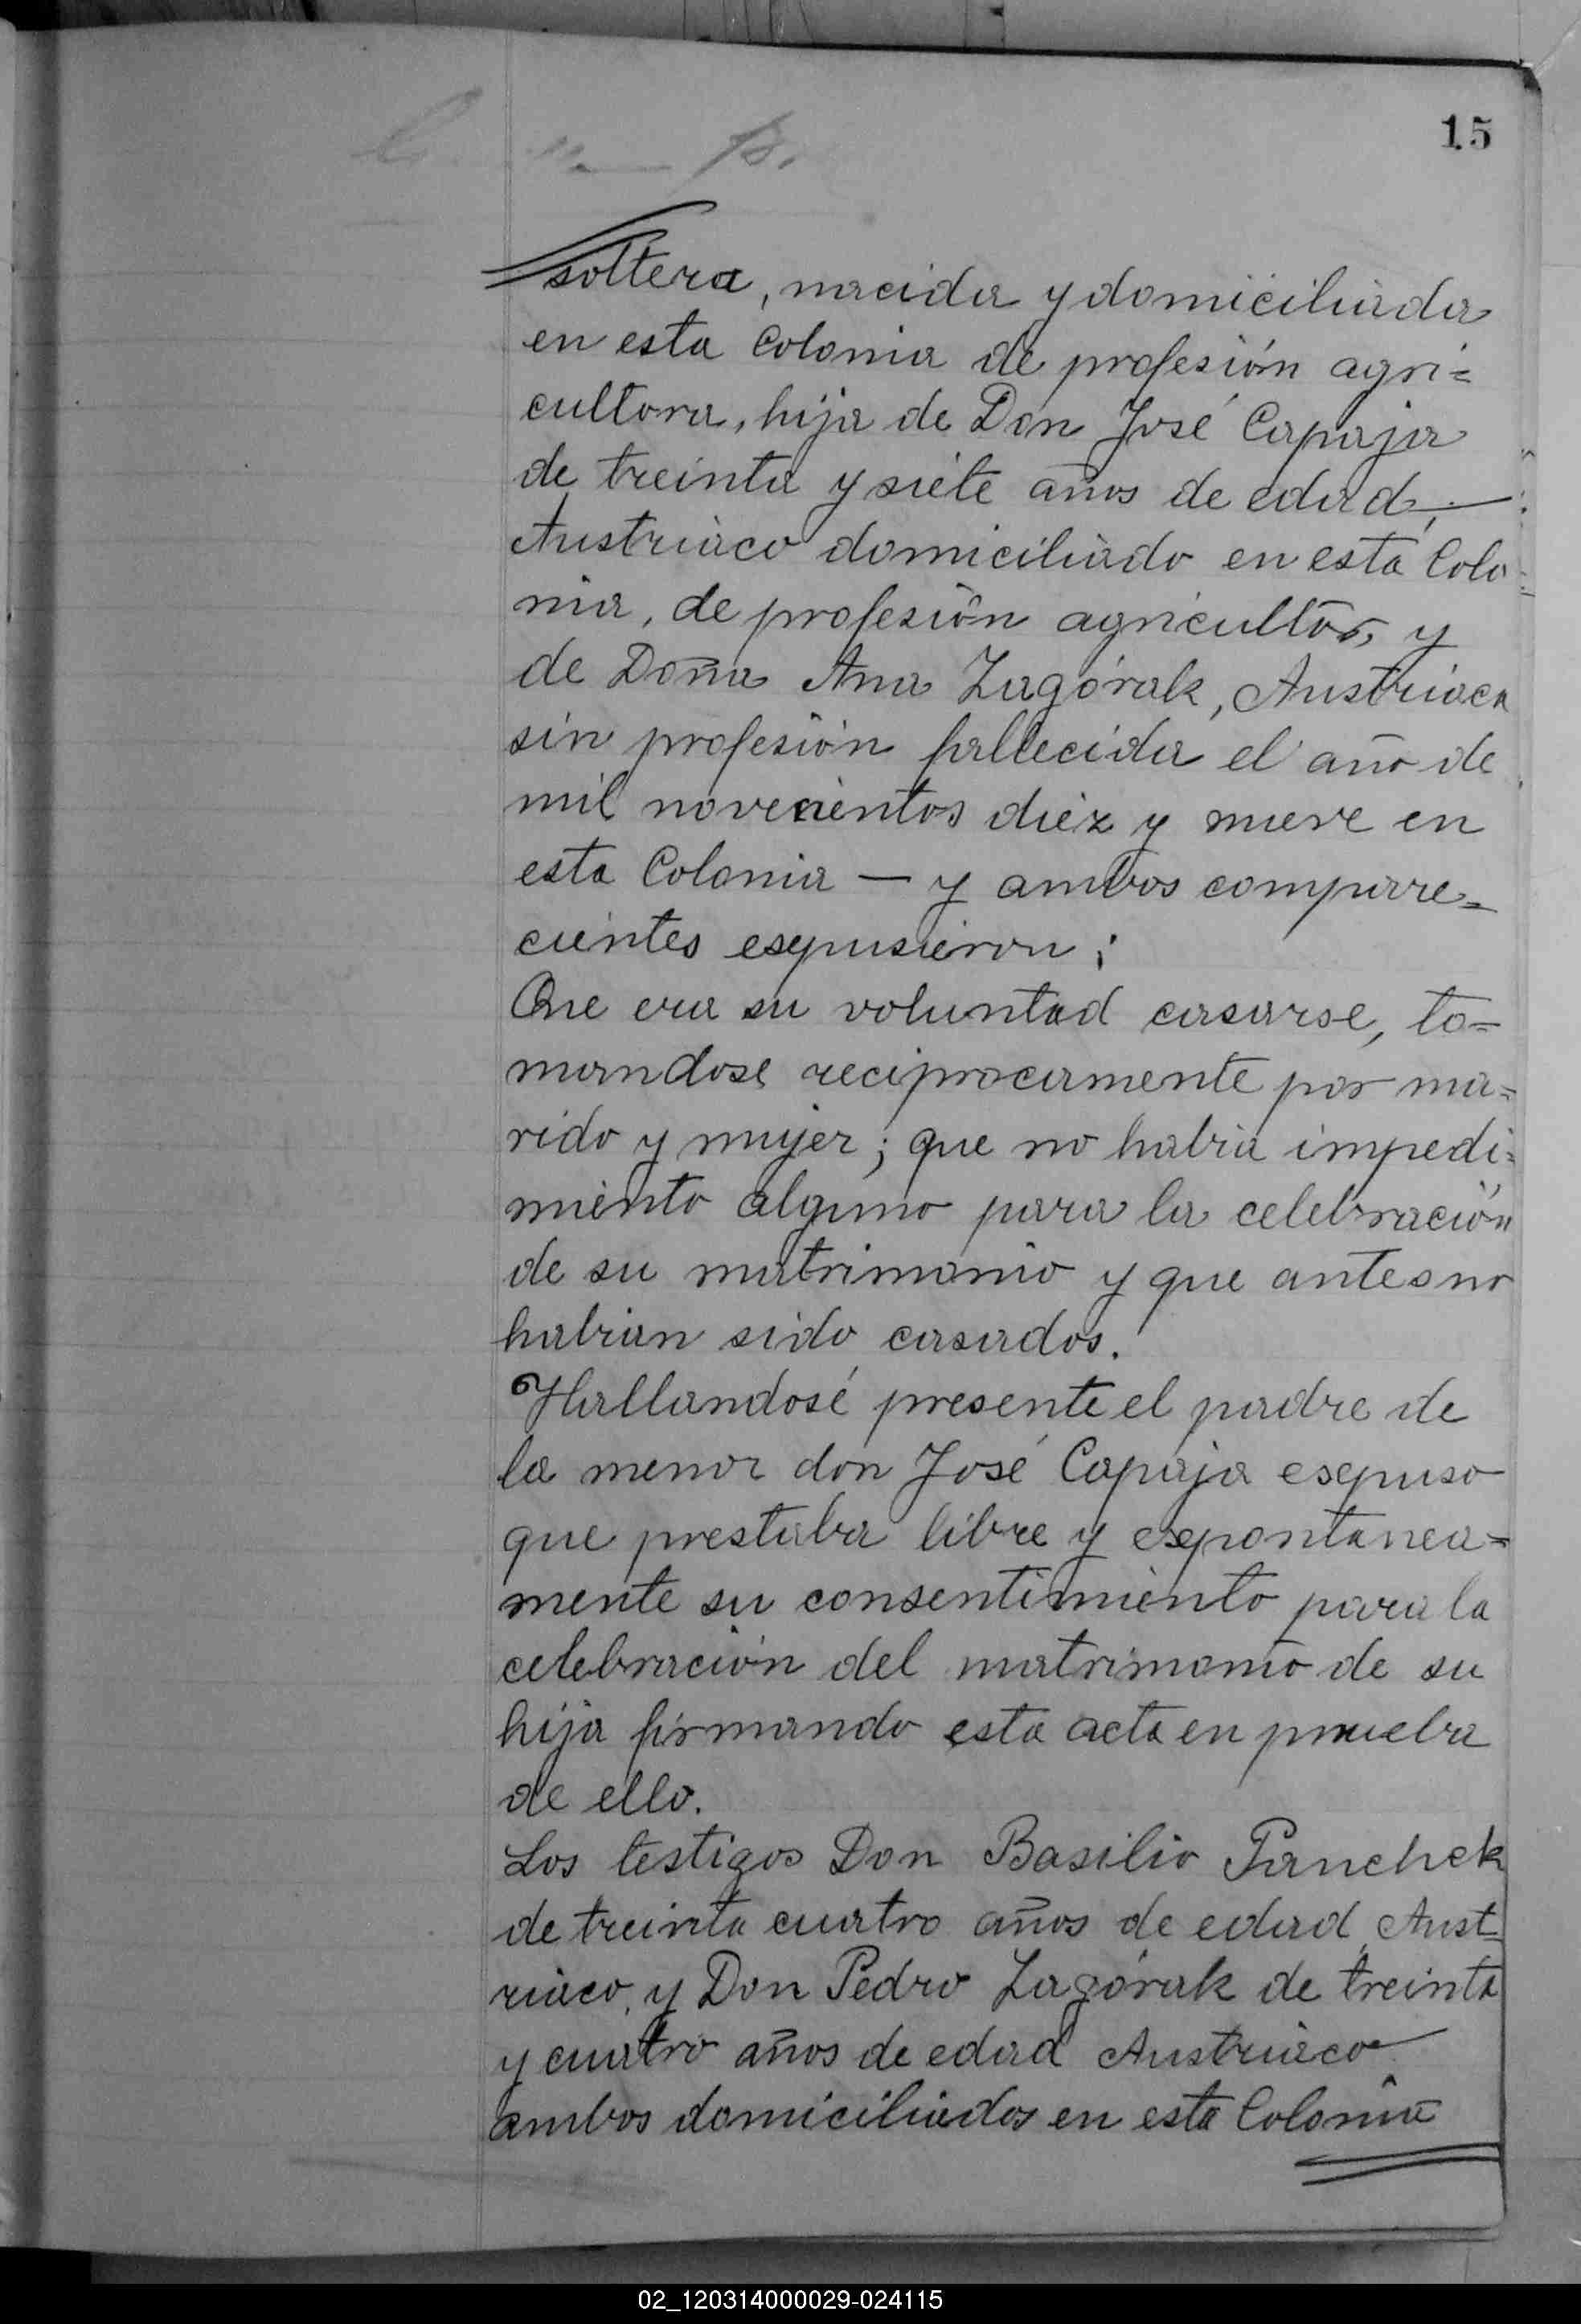 15
soltera, nacida y domiciliada
en esta Colonia de profesión agri=
cultora, hija de Don José Capaja
de treinta y siete años de edad, —
Austriaco domiciliado en esta Colo=
nia, de profesión agricultor, y
de Doña Ana Zagórak, Austriaca
sin profesión fallecida el año de
mil novecientos diez y nueve en
esta Colonia — y ambos compare=
cientes espusieron;
Que era su voluntad casarse, to=
mandose reciprocamente por ma=
rido y mujer; que no habia impedi=
miento alguno para la celebración
de su matrimonio y que antes no
habian sido casados.
Hallandosé presente el padre de
la menor don José Capaja espuso
que prestaba libre y espontanea=
mente su consentimiento para la
celebración del matrimonio de su
hija firmando esta acta en prueba
de ello.
Los testigos Don Basilio Panchek
de treinta cuatro años de edad, Aust=
riaco, y Don Pedro Zagórak de treinta
y cuatro años de edad Austriaco
ambos domiciliados en esta Colonia
02_120314000029-024115